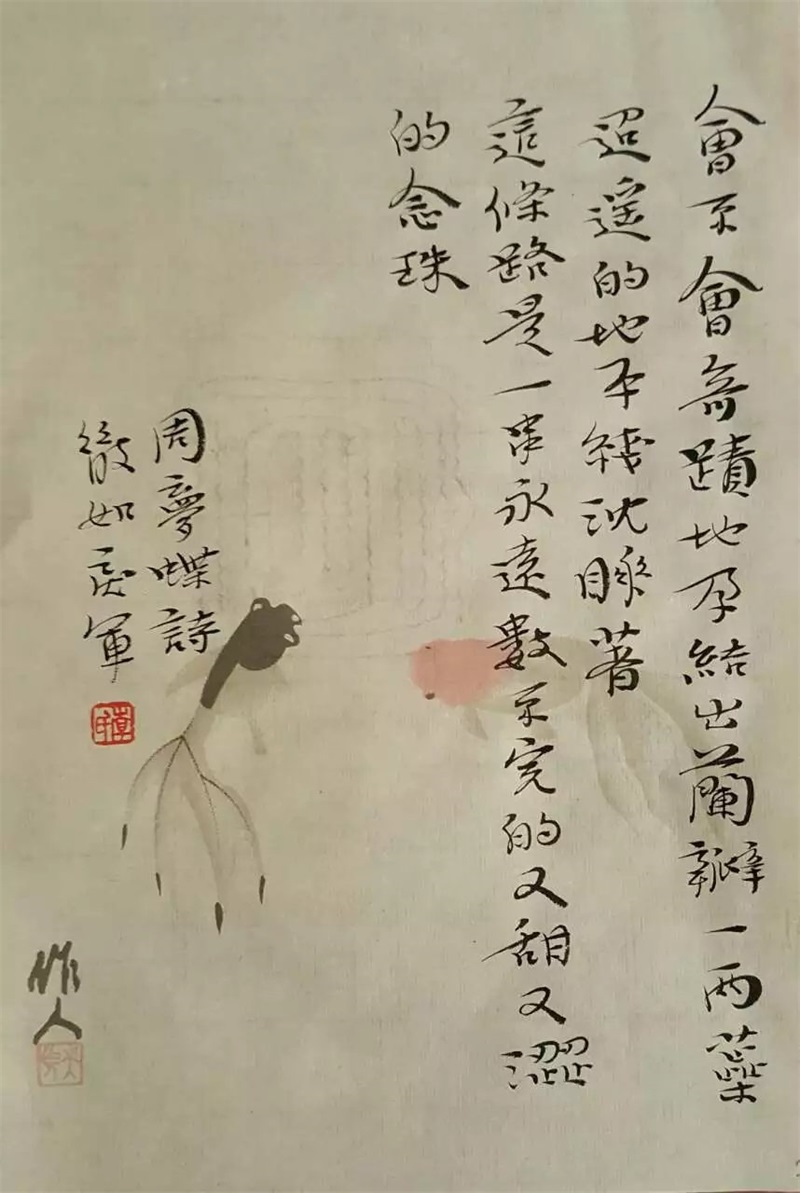 會不會奇蹟地孕結出蘭瓣一兩蕋
迢遙的地平綫沈睡著
這條路是一串永遠數不完的又甜又澀
的念珠
周夢蝶詩
如軍
作人